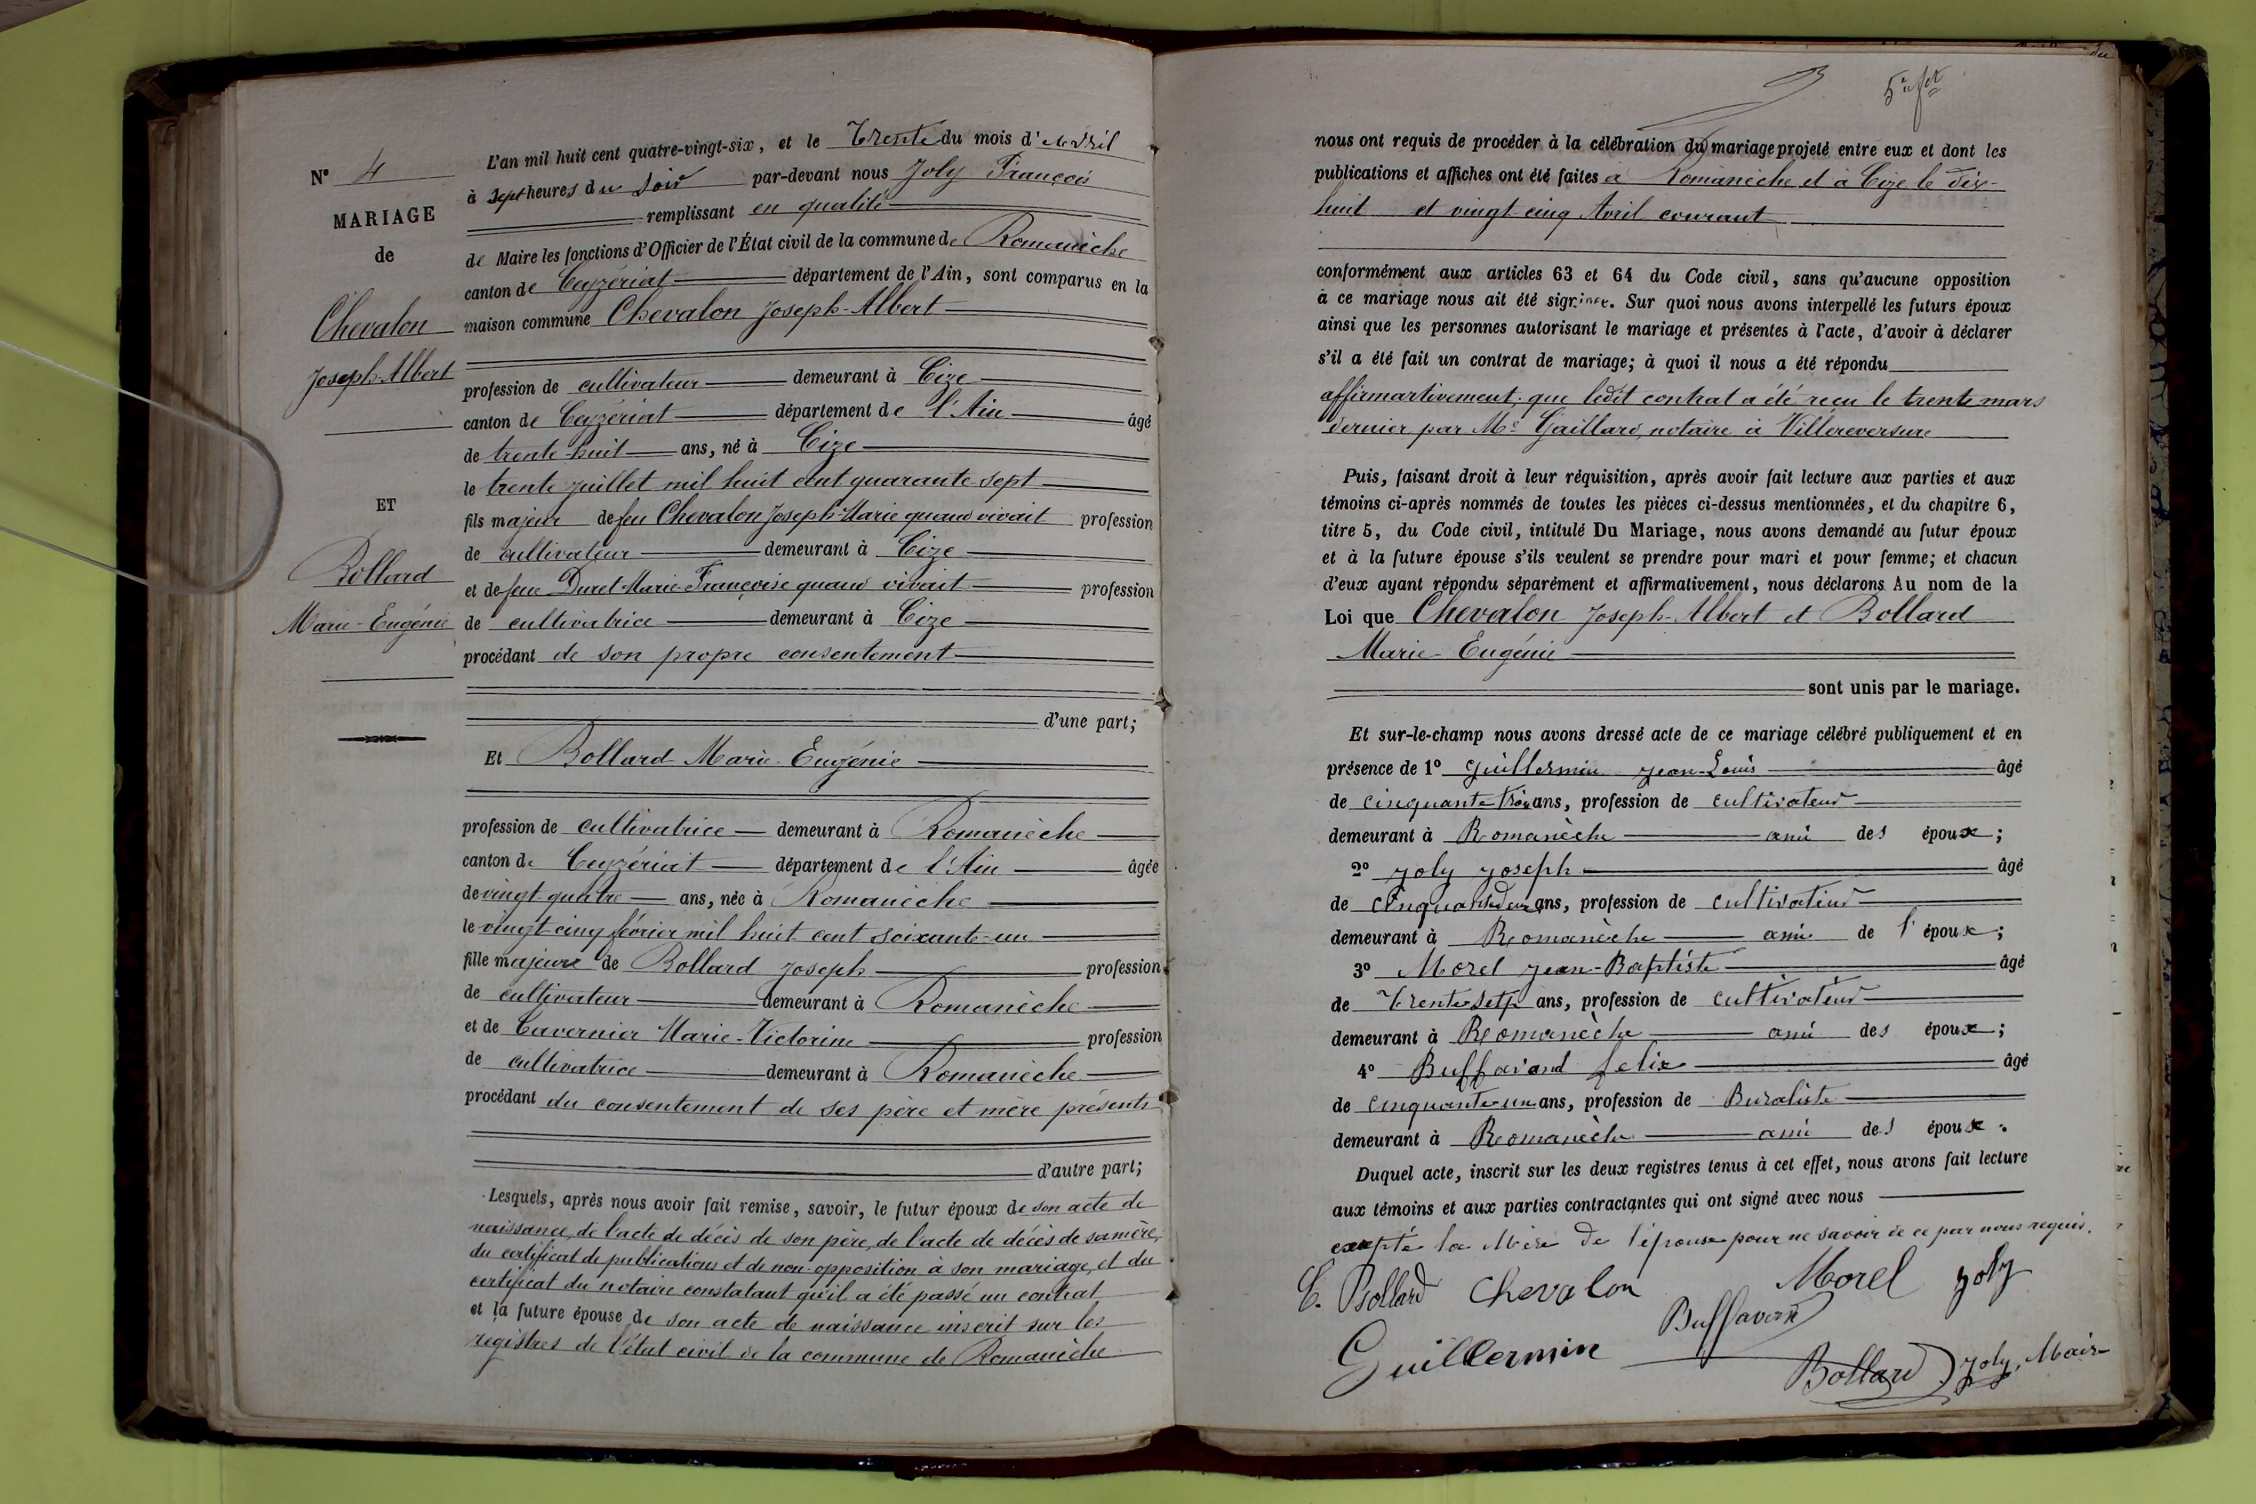 N° 4
MARIAGE
de
Chevalon
Joseph-Albert
ET
Bollard
Marie-Eugénie
L'an mil huit cent quatre-vingt-six, et le Trente du mois d'Avril
à sept heures du soir par-devant nous Joly François
remplissant en qualité
de Maire les fonctions d'Officier de l'État civil de la commune de Romanèche
canton de Ceyzériat département de l'Ain, sont comparus en la
maison commune Chevalon Joseph-Albert
profession de cultivateur demeurant à Cize
canton de Ceyzériat département de l'Ain âgé
de trente-huit ans, né à Cize
le trente juillet mil huit cent quarante-sept
fils majeur de feu Chevalon Joseph-Marie quand vivait profession
de cultivateur demeurant à Cize
et de feue Duret Marie-Françoise quand vivait profession
de cultivatrice demeurant à Cize
procédant de son propre consentement
d'une part;
Et Bollard Marie-Eugénie
profession de cultivatrice demeurant à Romanèche
canton de Ceyzériat département de l'Ain âgée
de vingt-quatre ans, née à Romanèche
le vingt-cinq février mil huit cent soixante-un
fille majeure de Bollard Joseph profession
de cultivateur demeurant à Romanèche
et de Tavernier Marie-Victorine profession
de cultivatrice demeurant à Romanèche
procédant du consentement de ses père et mère présents
d'autre part;
Lesquels, après nous avoir fait remise, savoir, le futur époux de son acte de
naissance, de l'acte de décès de son père, de l'acte de décès de sa mère,
du certificat de publications et de non-opposition à son mariage, et du
certificat du notaire constatant qu'il a été passé un contrat
et la future épouse de son acte de naissance inscrit sur les
registres de l'état civil de la commune de Romanèche
nous ont requis de procéder à la célébration du mariage projeté entre eux et dont les
publications et affiches ont été faites à Romanèche et à Cize le dix-
huit et vingt-cinq Avril courant
conformément aux articles 63 et 64 du Code civil, sans qu'aucune opposition
à ce mariage nous ait été signifiée. Sur quoi nous avons interpellé les futurs époux
ainsi que les personnes autorisant le mariage et présentes à l'acte, d'avoir à déclarer
s'il a été fait un contrat de mariage; à quoi il nous a été répondu
affirmartivement; que ledit contrat a été reçu le trente mars
dernier par Me Gaillard, notaire à Villereversure
Puis, faisant droit à leur réquisition, après avoir fait lecture aux parties et aux
témoins ci-après nommés de toutes les pièces ci-dessus mentionnées, et du chapitre 6,
titre 5, du Code civil, intitulé Du Mariage, nous avons demandé au futur époux
et à la future épouse s'ils veulent se prendre pour mari et pour femme; et chacun
d'eux ayant répondu séparément et affirmativement, nous déclarons Au nom de la
Loi que Chevalon Joseph-Albert et Bollard
Marie-Eugénie
sont unis par le mariage.
Et sur-le-champ nous avons dressé acte de ce mariage célébré publiquement et en
présence de 1° Guillermin Jean-Louis âgé
de cinquante trois ans, profession de cultivateur
demeurant à Romanèche ami des époux;
2° Joly Joseph âgé
de cinquante deux ans, profession de cultivateur
demeurant à Romanèche ami de l'époux;
3° Morel Jean-Baptiste âgé
de Trente setp ans, profession de cultivateur
demeurant à Romanèche ami des époux;
4° Buffavand felix âgé
de cinquante-un ans, profession de Buraliste
demeurant à Romanèche ami des époux.
Duquel acte, inscrit sur les deux registres tenus à cet effet, nous avons fait lecture
aux témoins et aux parties contractantes qui ont signé avec nous
excepté la Mère de l'épouse pour ne savoir de ce par nous requis.
E. Bollard Chevalon Morel Joly
Guillermin Buffavand
Bollard Joly, Maire